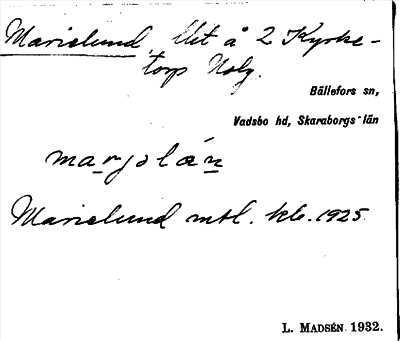 Marielund, lht å 2 Kyrke-
torp Nolg.
Bällefors sn,
Vadsbo hd, Skaraborgs län
marjelán
Marielund mtl. kb. 1925.
L. MADSÉN 1932.